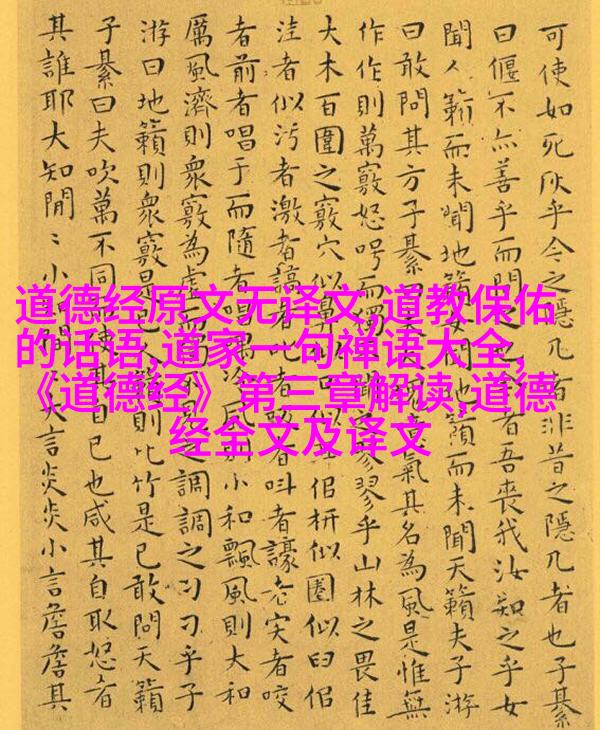 可使如死灰乎今之隱几者非昔之隱几者也子綦
曰偃不亦善乎而問之者吾喪我汝知之乎女
聞人籟而未聞地籟女聞地籟而未聞天籟夫子游
曰敢問其方子綦曰噫氣其名為風是惟無
作作則萬竅怒呺而獨不聞之翏翏乎山林之畏佳
大木百圍之竅穴似鼻似口佀枅似圈似臼佀
洼者似污者激者謞者叱者吸者叫者譹者宎者咬
者前者唱于而隨者唱喁泠風則小和飄風則大和
厲風濟則衆竅為虛而獨不見之調調之刁刁乎子
游曰地籟則衆竅是已人籟則比竹是已敢問天籟
子綦曰夫吹萬不同而使其自已也咸其自取怒者
其誰耶大知閒〻小知閒大言炎炎小言詹詹其
道德经原文无译文,道教保佑
的话语,道家一句禅语大全,
《道德经》第三章解读,道德
经全文及译文